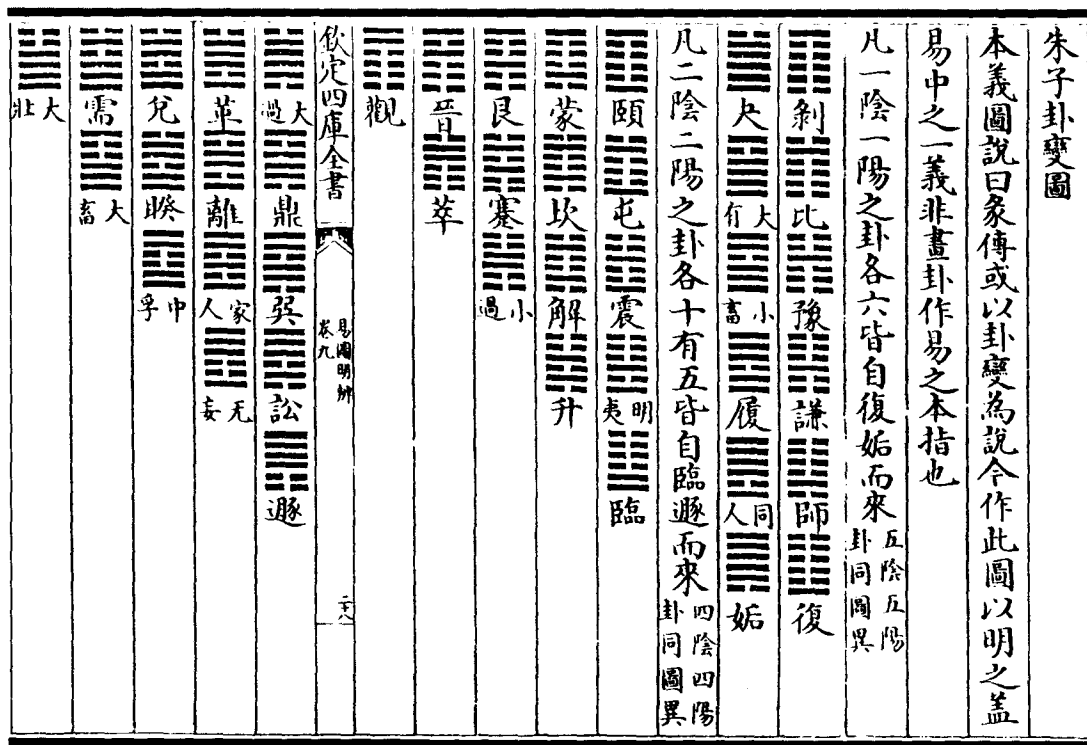 朱子卦變圖
本義圖說曰彖傳或以卦變為說今作此圖以明之蓋
易中之一義非畫卦作易之本指也
凡一陰一陽之卦各六皆自復姤而來五陰五陽卦同圖異
剝比豫謙師復
夬大有小畜履同人姤
凡二陰二陽之卦各十有五皆自臨遯而來四陰四陽卦同圖異
頤屯震明夷臨
蒙坎解升
艮蹇小過
晉萃
觀
欽定四庫全書 易圖明辨卷九 二十八
大過鼎巽訟遯
革離家人无妄
兌睽中孚
需大畜
大壯